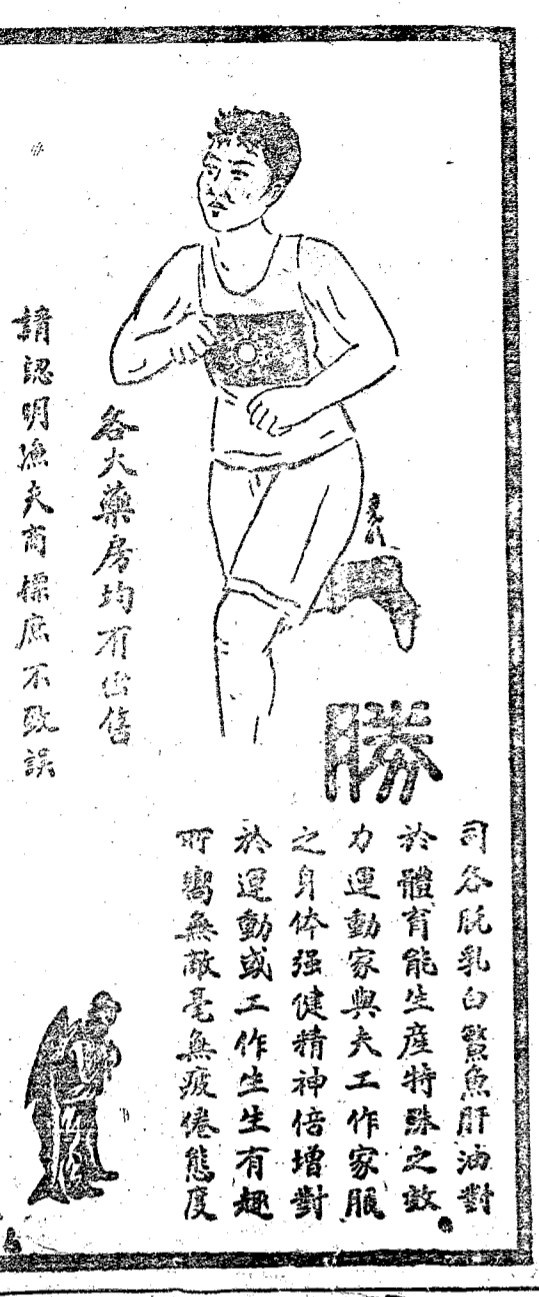 勝
司各脫乳白鰵魚肝油對
於體育能生產特殊之效
力運動家與夫工作家服
之身体强健精神倍增對
於運動或工作生生有趣
所嚮無敵毫無疲倦態度
各大藥房均有出售
請認明漁夫商標庶不致誤